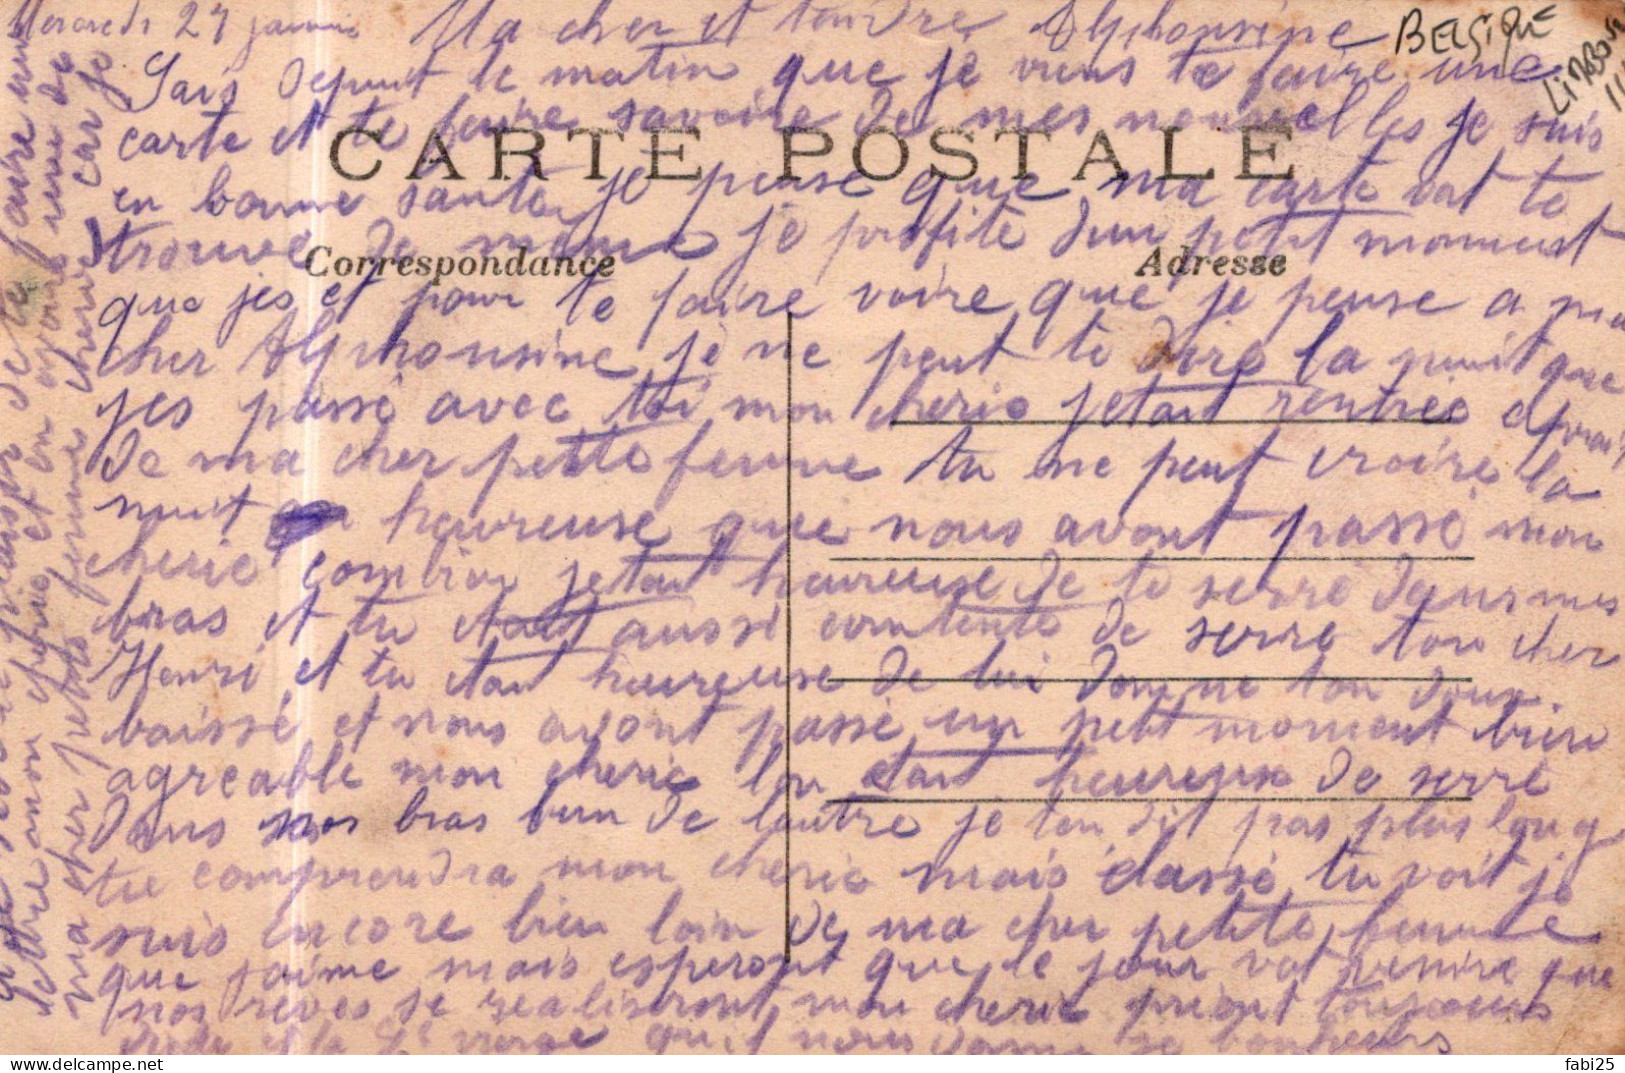 Mercredi 27 janvier Ma cher et tendre Alphonsine
BELGIQUE
Sais depuit le matin que je viens te faire une
carte et te faire savoire de mes nouvelles je suis
CARTE POSTALE
en bonne santé je pense que ma carte vat te
trouve de meme je profite dun petit moment
Correspondance
Adresse
que jes et pour te faire voire que je pense a ma
cher Alphonsine je ne peut te dire la nuit que
jes passé avec toi mon cherie jetait rentrée
de ma cher petite femme tu ne peut croire la
nuit heureuse que nous avont passé mon
cherie combien jetait heureuse de te serré dans mes
bras et tu etait aussi contente de serre ton cher
Henri et tu etait heureuse de lui donne ton doux
baissé et nous avont passé un petit moment bien
agreable mon cherie lon etait heureux de serré
dans nos bras lun de lautre je ten dit pas plus long
tu comprendra mon cherie mais classé tu voit je
suis encore bien loin de ma cher petite femme
que jaime mais esperont que le jour vat venire que
nos reves se realiseront mon cherie priont toujours
et la Ste vierge qui nous donne le bonheurs
ma cher petite femme cherie car je
fabi25